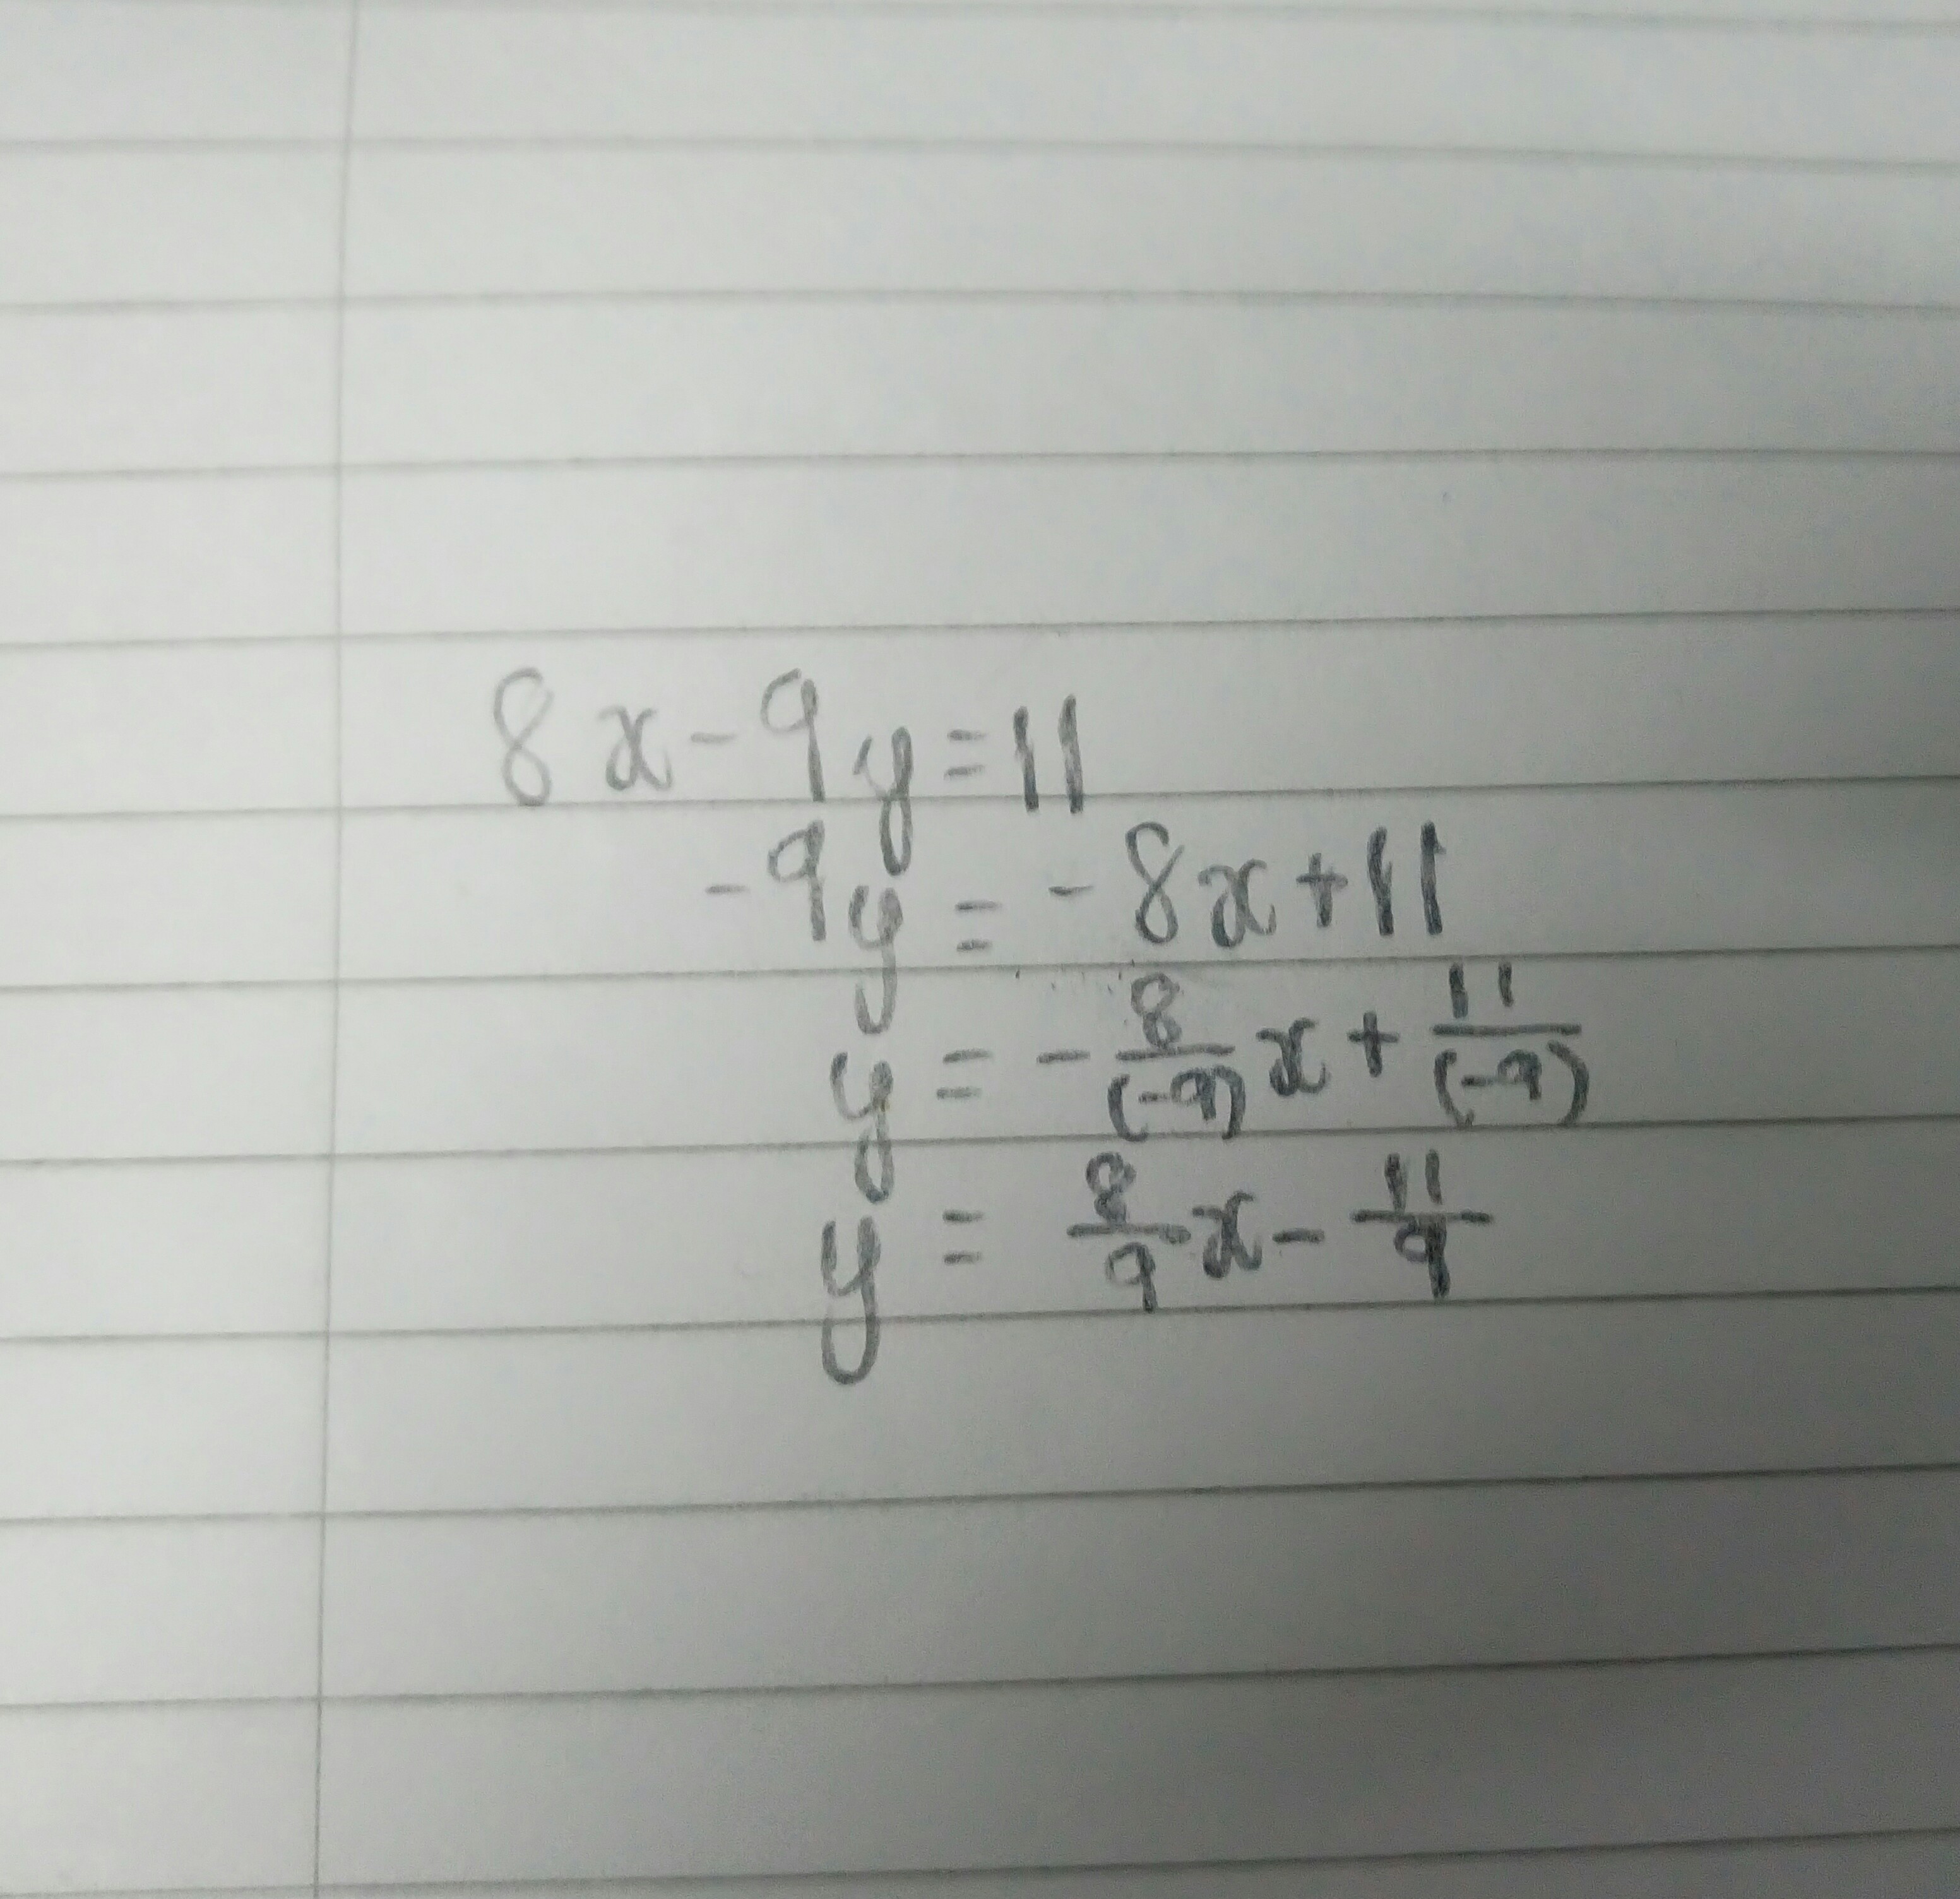 8x - 9y = 11
-9y = -8x + 11
y = -8/(-9) x + 11/(-9)
y = 8/9 x - 11/9